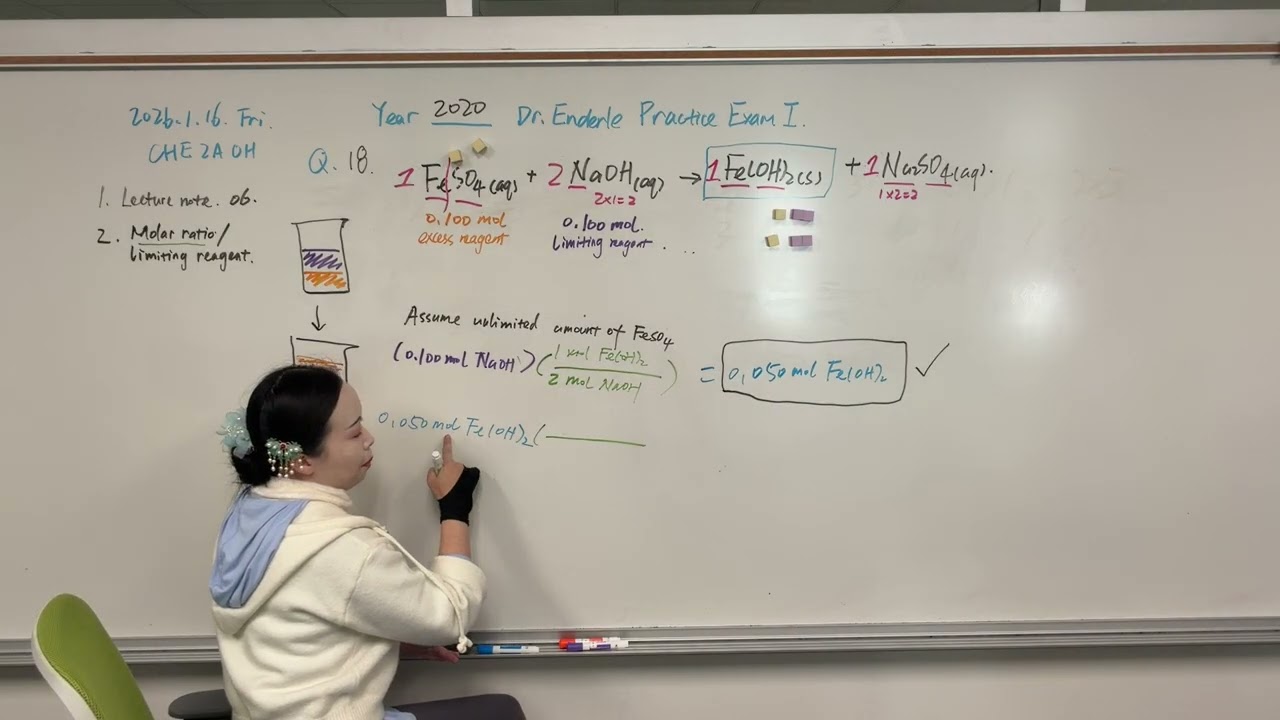 2026.1.16. Fri.
CHE 2A OH
1. Lecture note. 06.
2. Molar ratio/
limiting reagent.
Year 2020 Dr. Enderle Practice Exam I.
Q. 18.
1 FeSO4 (aq) + 2 NaOH (aq) → 1 Fe(OH)2 (s) + 1 Na2SO4 (aq).
2x1=2
1x2=2
0.100 mol
excess reagent
0.100 mol.
limiting reagent . ..
Assume unlimited amount of FeSO4
(0.100 mol NaOH) (1 mol Fe(OH)2
2 mol NaOH) = 0.050 mol Fe(OH)2 ✓
0.050 mol Fe(OH)2 (